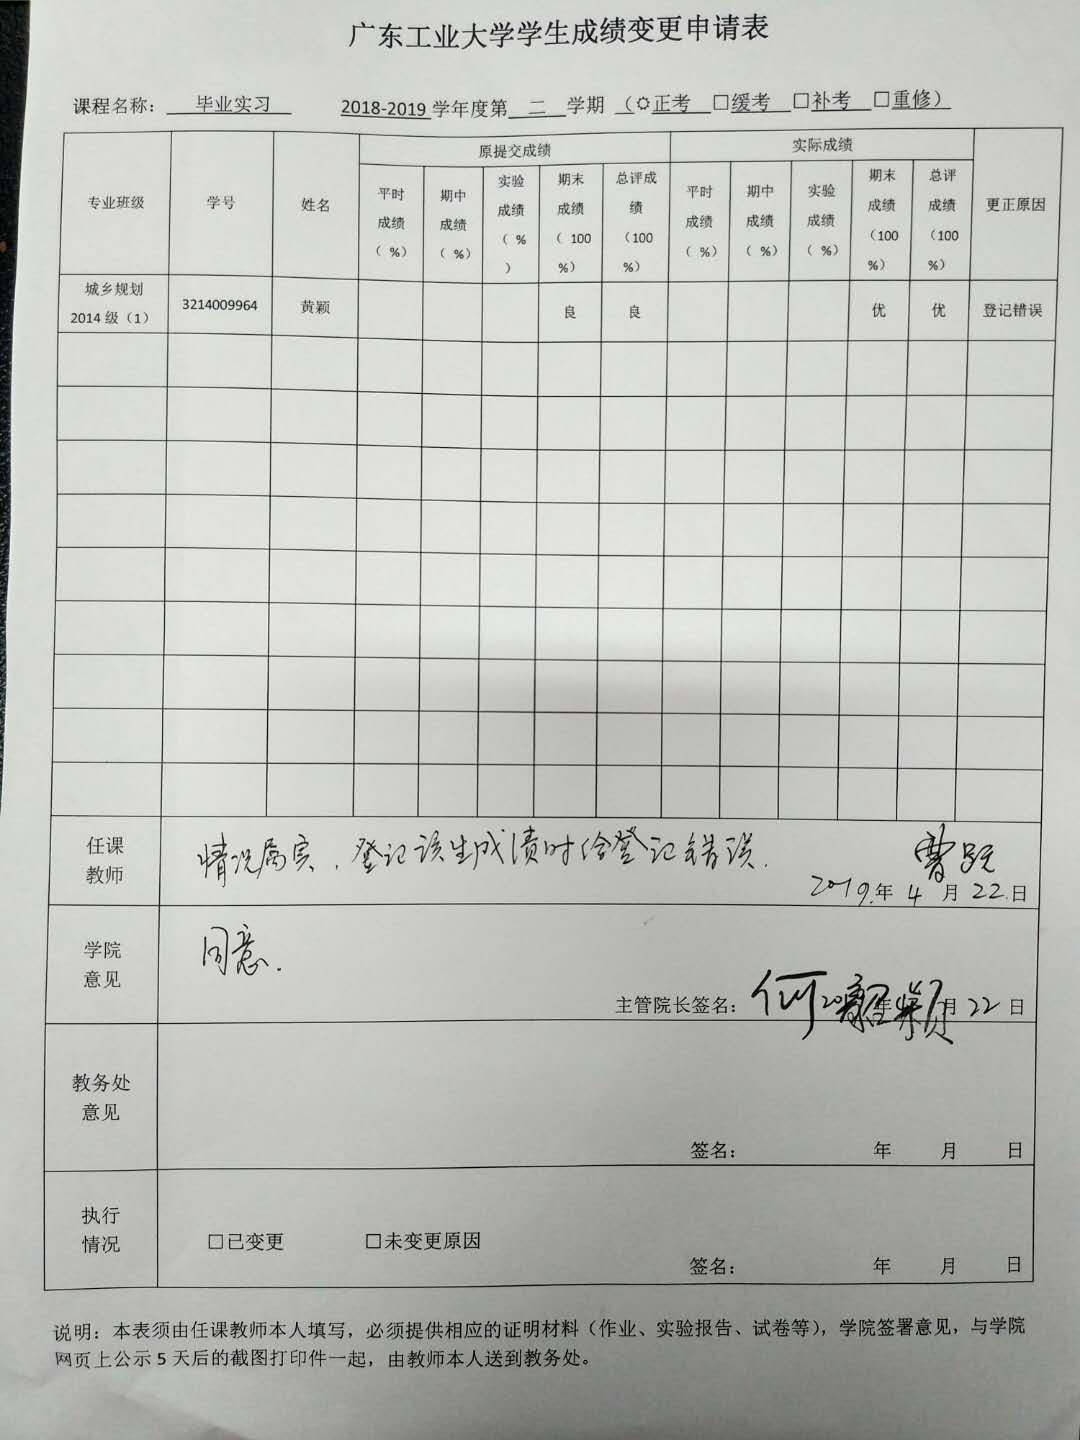 广东工业大学学生成绩变更申请表
课程名称： 毕业实习 2018-2019 学年度第 二 学期 （☼正考 □缓考 □补考 □重修）
专业班级 学号 姓名 原提交成绩 实际成绩 更正原因
平时成绩（ %） 期中成绩（ %） 实验成绩（ %） 期末成绩（ 100%） 总评成绩（100%） 平时成绩（ %） 期中成绩（ %） 实验成绩（ %） 期末成绩（100%） 总评成绩（100%）
城乡规划 2014 级（1） 3214009964 黄颖 良 良 优 优 登记错误
任课教师
情况属实，登记该生成绩时给登记错误.
曹
2019.年 4 月 22.日
学院意见
同意.
主管院长签名： 何韶颖 年 月 22 日
教务处意见
签名： 年 月 日
执行情况
□已变更 □未变更原因
签名： 年 月 日
说明：本表须由任课教师本人填写，必须提供相应的证明材料（作业、实验报告、试卷等），学院签署意见，与学院
网页上公示 5 天后的截图打印件一起，由教师本人送到教务处。